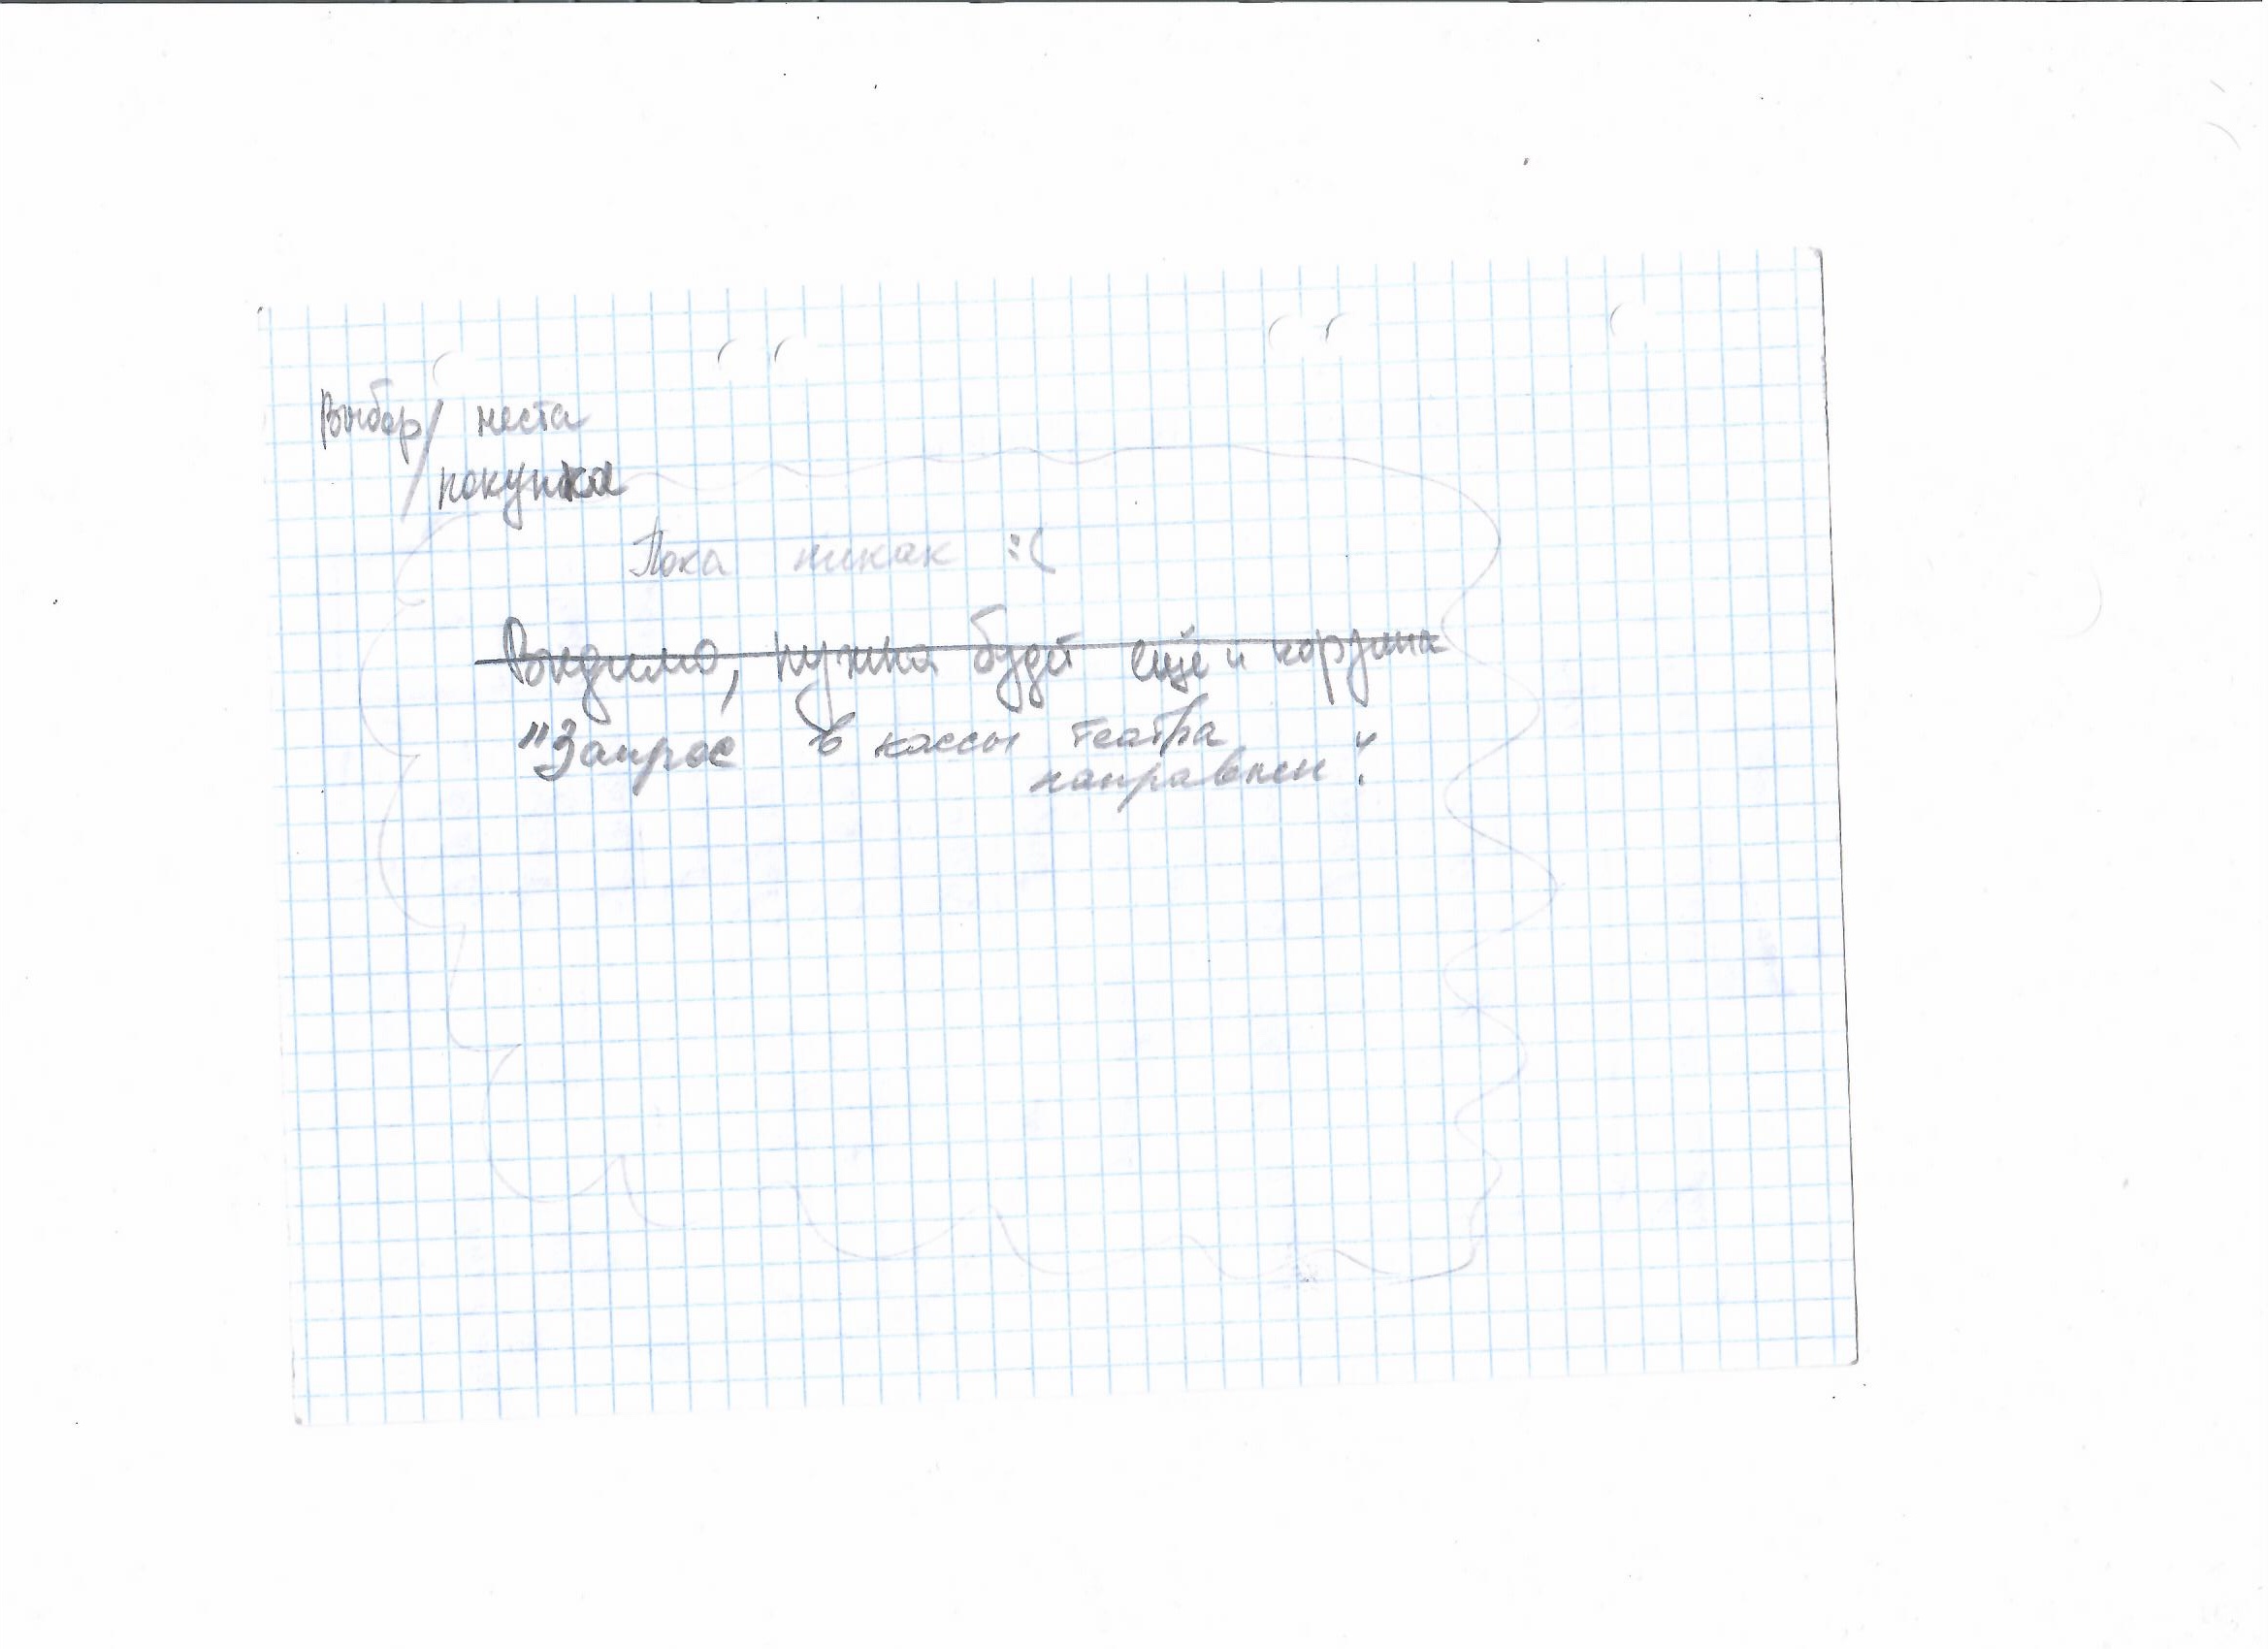 Выбор/ места
покупка
Пока никак :(
Видимо, нужна будет ещё и корзина
"Запрос в кассы театра
направлен".